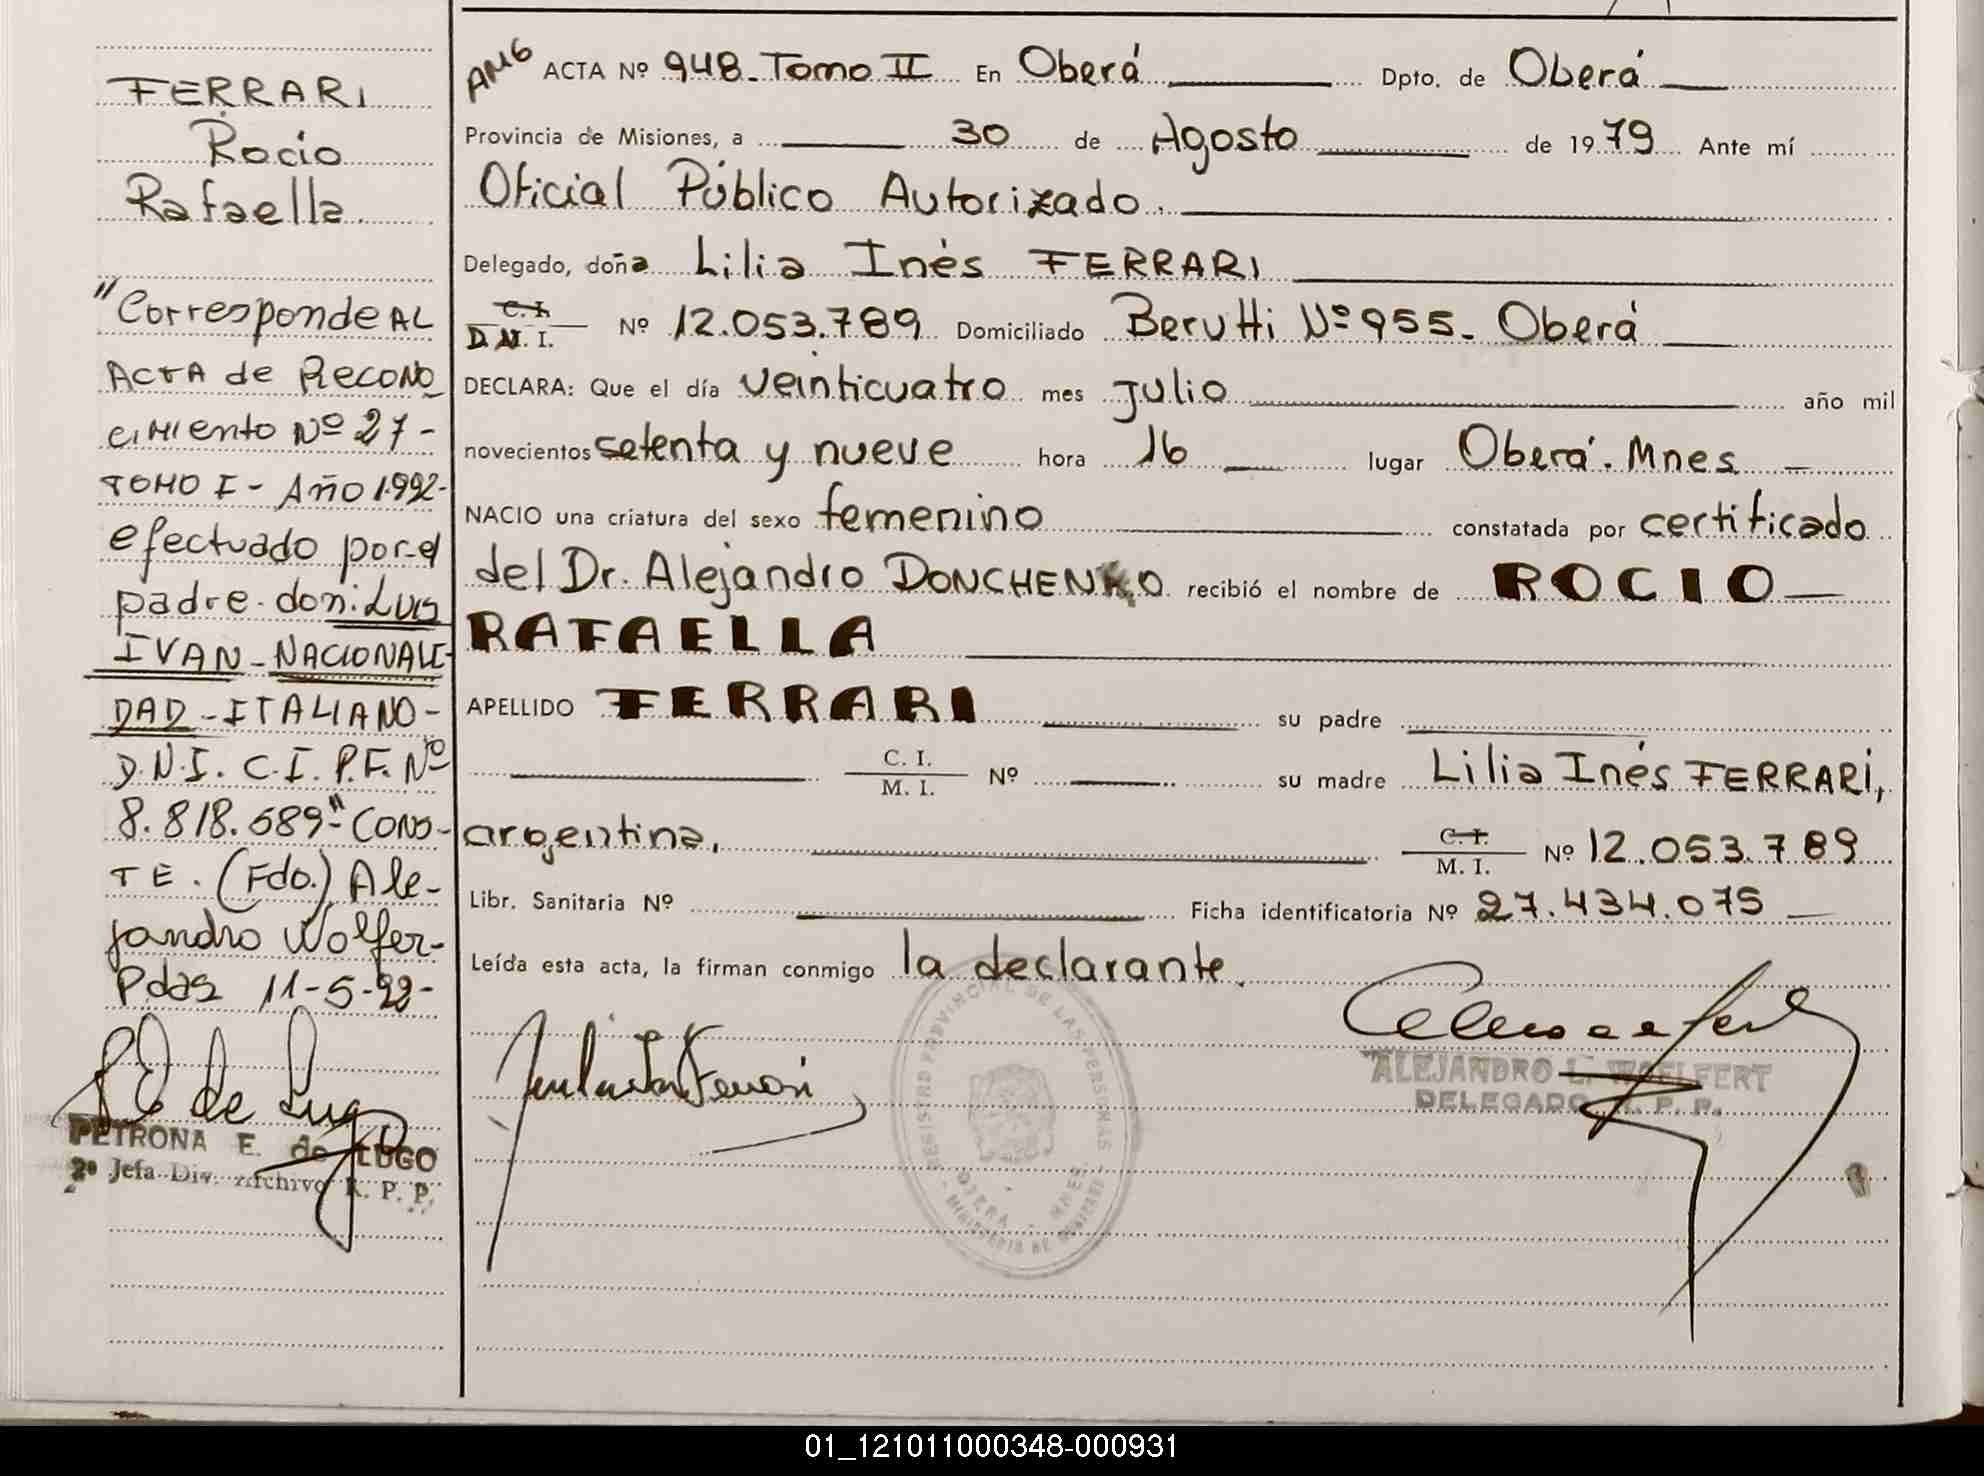 FERRARI
Rocio
Rafaella
"Corresponde AL
ACTA de RECONO
cimiento Nº 27-
TOMO I - Año 1.992-
efectuado por el
padre don: Luis
IVAN - NACIONALI-
DAD - ITALIANO -
D.N.I. C.I. P.F. Nº
8.818.589" CONS-
TE. (Fdo.) Ale-
jandro Wolfer-
Pdas 11-5-92-
PETRONA E. de LUGO
2º Jefa Div. Archivo R. P. P.
ACTA Nº 948 - Tomo II En Oberá Dpto. de Oberá
Provincia de Misiones, a 30 de Agosto de 1979 Ante mí
Oficial Público Autorizado.
Delegado, doña Lilia Inés FERRARI
C.I. D.N.I. Nº 12.053.789 Domiciliado Berutti Nº 955 - Oberá
DECLARA: Que el día veinticuatro mes julio año mil
novecientos setenta y nueve hora 16 lugar Oberá. Mnes
NACIO una criatura del sexo femenino constatada por certificado
del Dr. Alejandro DONCHENKO recibió el nombre de ROCIO
RAFAELLA
APELLIDO FERRARI su padre
C. I. M. I. Nº su madre Lilia Inés FERRARI,
argentina, C. I. M. I. Nº 12.053.789
Libr. Sanitaria Nº Ficha identificatoria Nº 27.434.075
Leída esta acta, la firman conmigo la declarante.
ALEJANDRO L. WOELFERT
DELEGADO R. P. P.
REGISTRO PROVINCIAL DE LAS PERSONAS
01_121011000348-000931